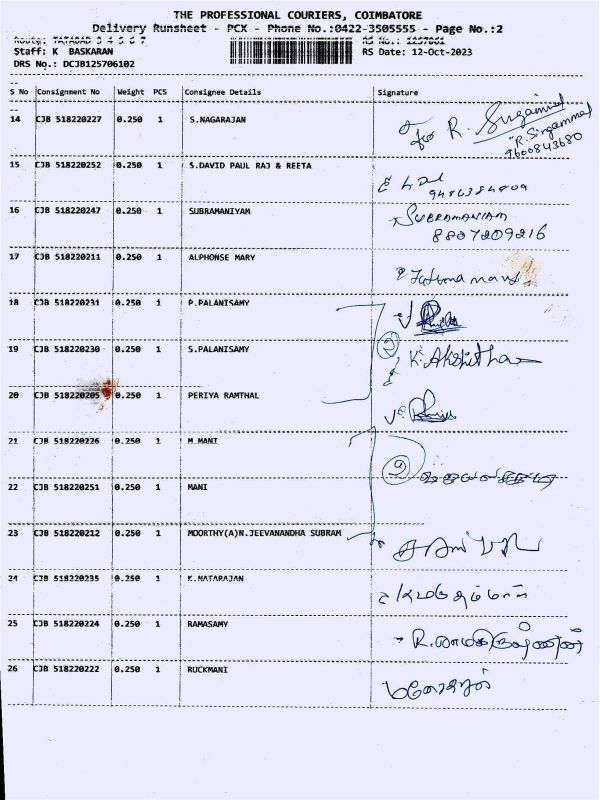 THE PROFESSIONAL COURIERS, COIMBATORE
Delivery Runsheet - PCX - Phone No.:0422-3505555 - Page No.:2
Staff: K BASKARAN RS Date: 12-Oct-2023
DRS No.: DCJB125706102
S No Consignment No Weight PCS Consignee Details Signature
14 CJB 518220227 0.250 1 S.NAGARAJAN
R.
R. Singammal
9600843680
15 CJB 518220252 0.250 1 S.DAVID PAUL RAJ & REETA
16 CJB 518220247 0.250 1 SUBRAMANIYAM SUBRAMANIAM
8807209216
17 CJB 518220211 0.250 1 ALPHONSE MARY
18 CJB 518220231 0.250 1 P.PALANISAMY
19 CJB 518220230 0.250 1 S.PALANISAMY K. Akshitha
20 CJB 518220205 0.250 1 PERIYA RAMTHAL
21 CJB 518220226 0.250 1 M.MANI
22 CJB 518220251 0.250 1 MANI
23 CJB 518220212 0.250 1 MOORTHY(A)N.JEEVANANDHA SUBRAM
24 CJB 518220235 0.250 1 K.NATARAJAN
25 CJB 518220224 0.250 1 RAMASAMY
26 CJB 518220222 0.250 1 RUCKMANI